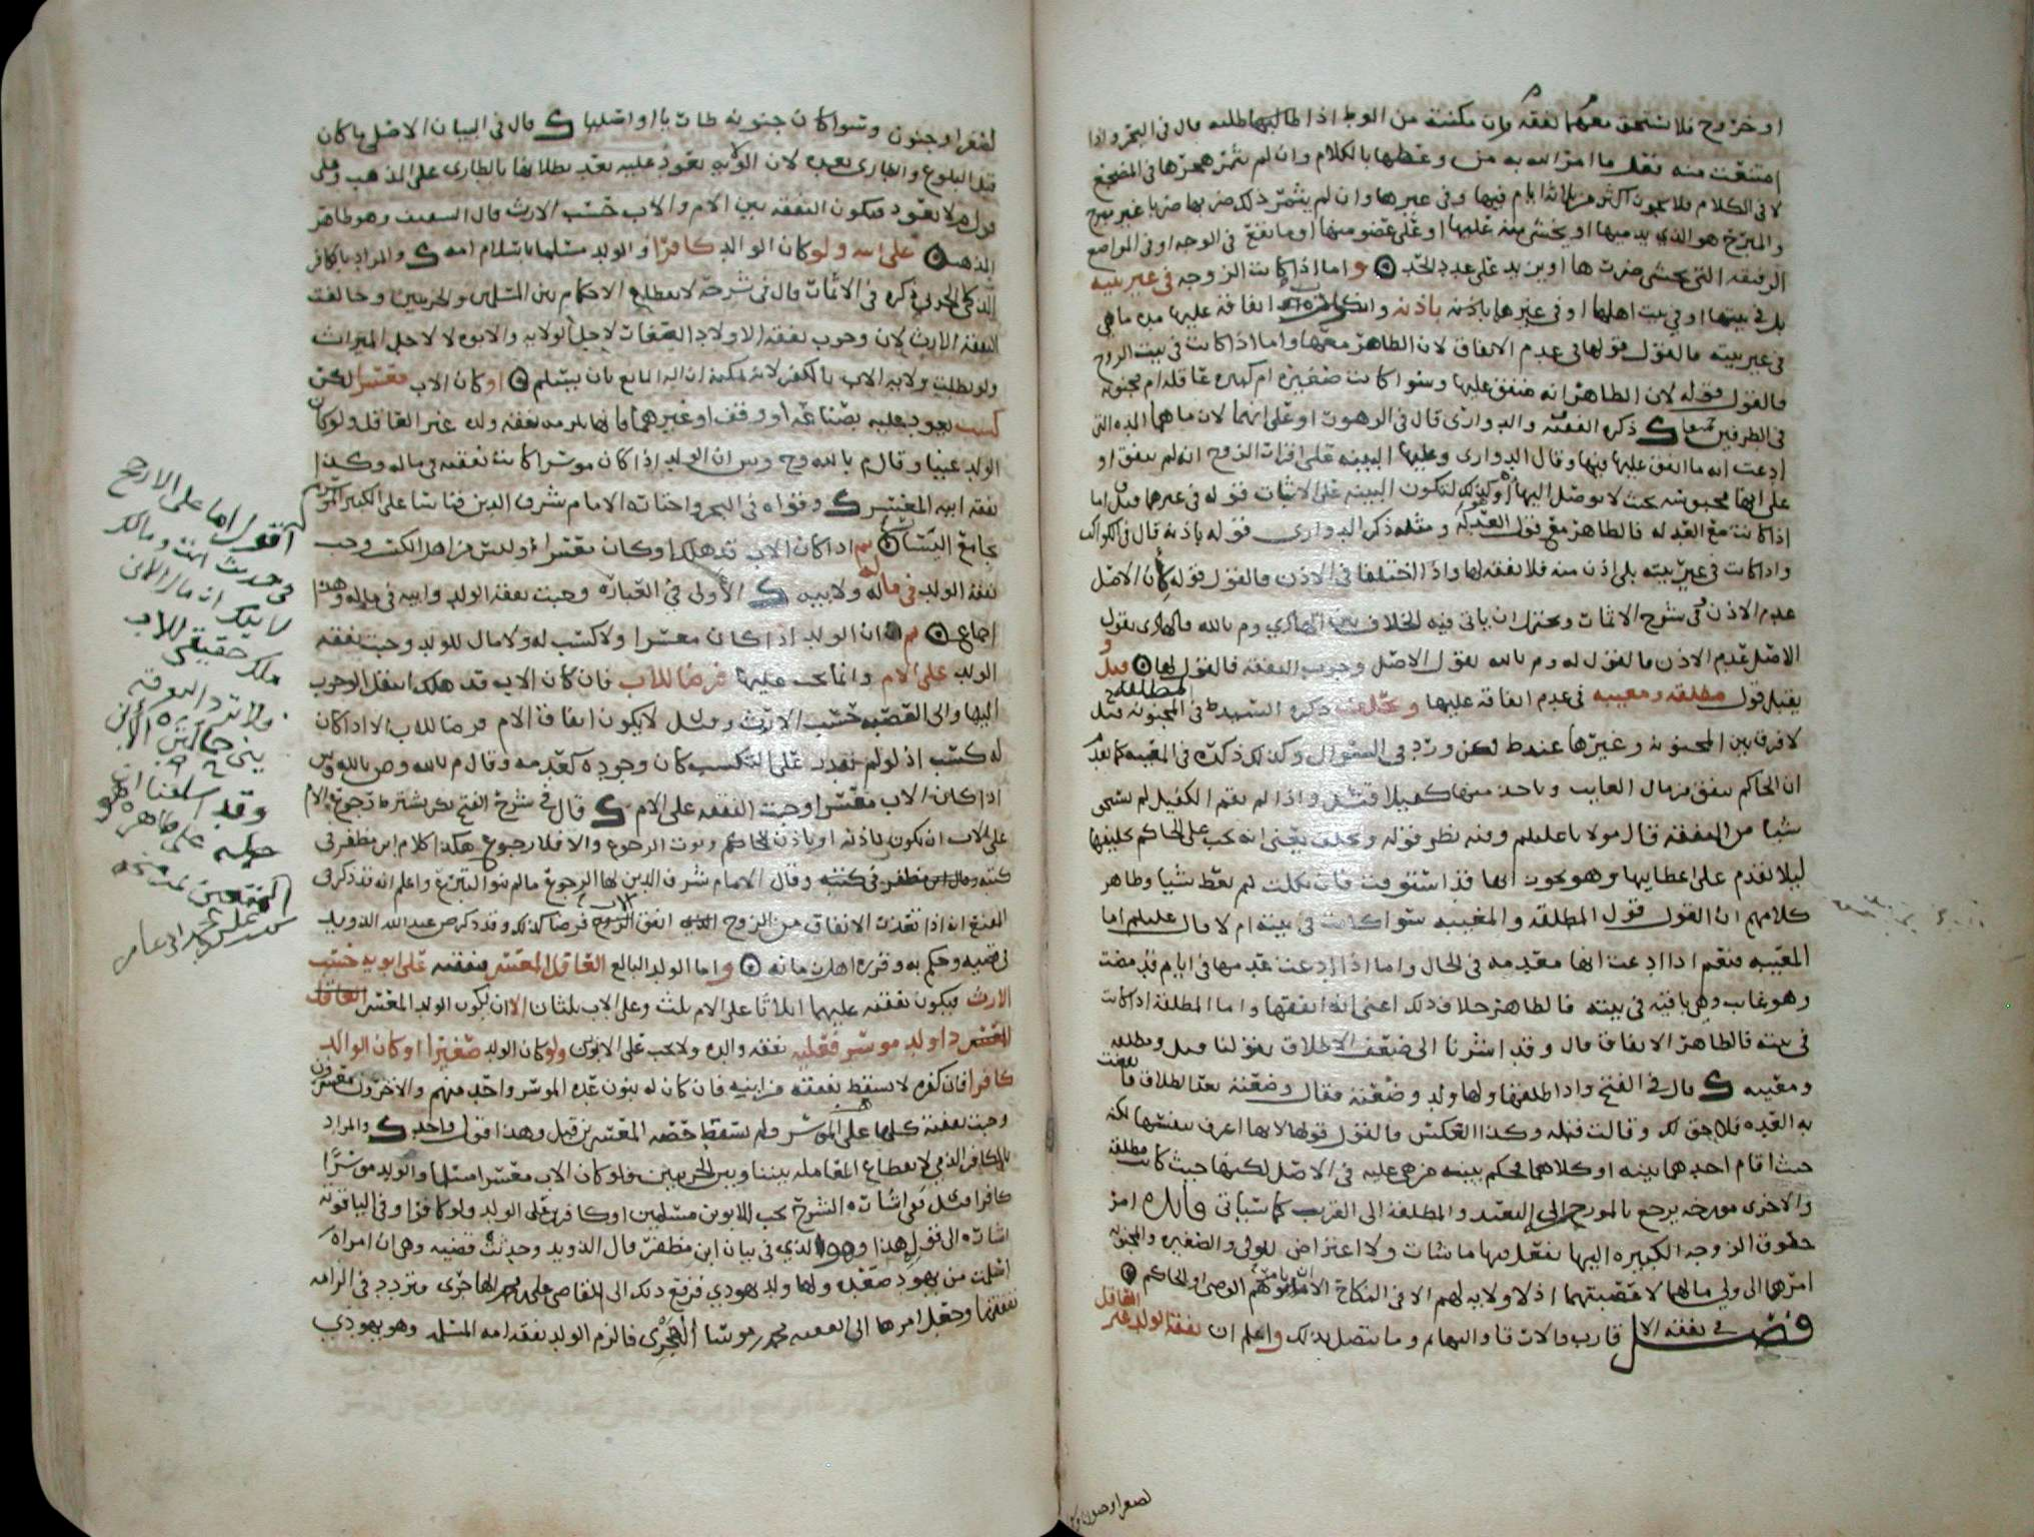 او خروج فلا تستحق معهما نفقه فان مكنته من الوط اذا طالبها طلبه قال في البحر واذا
امتنعت منه فعل ما امر الله به من وعظها بالكلام وان لم يثمر هجرها في المضجع
لا في الكلام فلا يجوز اكثر من ثلاثة ايام فيها وفي غيرها وان لم يثمر ذلك ضربها ضربا غير مبرح
والمبرح هو الذي يدميها او يخشى منه عليها او على عضو منها او ما يقع في الوجه او في المواضع
الرقيقه التي يخشى ضرت ها او يزيد على عدد الحد واما اذا كانت الزوجه في غير بيته
بل في بيتها او في بيت اهلها او في غيرها باذنه باذنه وانكرت انفاقه عليها مده ما هي
في غير بيته فالقول قولها في عدم الانفاق لان الظاهر معها واما اذا كانت في بيت الزوج
فالقول قوله لان الظاهر انه منفق عليها وسوا كانت صغيره ام كبيره عاقله ام مجنونه
في الطرفين معا ك ذكره الفقيه والدواري قال في الزهور او على ايهما لان ماهما البينه التي
ادعت انه ما انفق عليها فيها وقال الدواري وعليها البينه على اقرار الزوج انه لم ينفق او
على انها محبوسه بحيث لا يوصل اليها وكذلك لتكون البينه على الاثبات قوله في غيرها قبل اما
اذا كانت مع العبد له فالظاهر مع قول العبد ومثله ذكر الدواري قوله باذنه قال في الكواكب
واذا كانت في غير بيته بلى اذن منه فلا نفقه لها واذا اختلفا في الاذن فالقول قوله لان الاصل
عدم الاذن في شرح الاثمات ويحتمل ان ياتي فيه الخلاف بين الهادي وم بالله فالهادي يقول
الاصل عدم الاذن فالقول له وم بالله يقول الاصل وجوب النفقه فالقول لها قيل و
يقبل قول مطلقه ومغيبه في عدم انفاقه عليها وتحلف ذكره السيد ط في المجنونه قيل
لا فرق بين المجنونه وغيرها عند ط لكن ورد في السؤال وكذلك ذكره في المغيبه كما بعد
ان الحاكم ينفق من مال الغايب وياخذ منها كفيلا قيل واذا لم تقم الكفيل لم تستحق
شيا من النفقه قال مولانا عليلم وفيه نظر قوله وتحلف يعني انه يجب على الحاكم تحليفها
ليلا تقدم على عطايها وهو يجوز انها قد استوفت فان نكلت لم تعط شيا وظاهر
كلامهم ان القول قول المطلقه والمغيبه سوا كانت في بيته ام لا قال عليلم اما
المغيبه فنعم اذا ادعت انها معدمه في الحال واما اذا ادعت عدمها في ايام قد مضت
وهو غايب وهي باقيه في بيته فالظاهر خلاف ذلك اعني انه انفقها واما المطلقه اذا كانت
في بيته فالظاهر الانفاق قال وقد اشرنا الى ضعف الاطلاق بقولنا قيل ومطلقه
ومغيبه ك قال في الفتح واذا طلقها ولها ولد وضعته فقال وضعته بعد الطلاق فانقضت
به العده فلا حق لك وقالت قبله وكذا العكس فالقول قولها لانها اعرف بنفسها لكنه
حيث اقام احدهما بينه او كلاهما يحكم ببينه من هي عليه في الاصل لكنها حيث كانت مطلقه
والاخرى مورخه يرجع بالمورخ الى البعيد والمطلقه الى القريب كما سياتي فايده امر
حقوق الزوجه الكبيره اليها تفعل فيها ما شات ولا اعتراض للولي والصغيره والمجنونه
امرهما الى ولي مالهما لا عصبتهما اذ لا ولايه لهم الا في النكاح الا من مالهم الوصي او الحاكم
فصل في نفقه الاقارب والارقا والبهايم وما يتصل بذلك واعلم ان نفقة الولد غير العاقل
لصغر او جنون وسوا
لصغر او جنون وسوا كان جنونه طاريا او اصليا ك قال في البيان الاصلي ما كان
قبل البلوغ والطاري بعده لان الولايه تعود عليه بعد بطلانها بالطاري على المذهب وعلى
قول م لا تعود فيكون النفقه بين الام والاب حسب الارث قال السعيد وهو ظاهر
المذهب على ابيه ولو كان الوالد كافرا والولد مسلما باسلام امه ك والمراد بالكافر
الذمي لا الحربي ذكره في الاثمات قال في شرحه لانقطاع الاحكام بين المسلمين والحربيين وخالفت
النفقه الارث لان وجوب نفقه الاولاد الضعفات لاجل الولايه والابوه لا لاجل الميراث
ولو بطلت ولايه الاب بالكفر لانه يمكنه ازاله المانع بان يسلم او كان الاب معسرا لكن
كسب يعود عليه بصناعه او وقف او غيرهما فانها تلزمه نفقه ولده غير العاقل ولو كان
الولد غنيا وقال م بالله وح وش ان الولد اذا كان موسرا كانت نفقته في ماله وكذا
نفقه ابيه المعسر ك وقواه في البحر واختاره الامام شرف الدين قياسا على الكبير الموسر
بجامع اليسار ثم اذا كان الاب قد هلك او كان معسرا وليس من اهل الكسب وجب
نفقة الولد في ماله ولابيه ك الاولى في العباره وجبت نفقه الولد وابيه في ماله وهذا
اجماع ثم ان الولد اذا كان معسرا ولا كسب له ولا مال للولد وجبت نفقه
الولد على الام وانما يجب عليها قرضا للاب فان كان الاب قد هلك انتقل الوجوب
اليها والى العصبه حسب الارث وقيل لا يكون انفاق الام قرضا للاب الا اذا كان
له كسب اذ لو لم يقدر على التكسب كان وجوده كعدمه وقال م بالله وص بالله وش
اذا كان الاب معسرا وجبت النفقه على الام ك قال في شرح الفتح لكن يشترط في رجوع الام
على الاب ان يكون باذنه او باذن الحاكم ونوت الرجوع والا فلا رجوع هكذا كلام ابن مظفر في
كتبه وقال ابن مظفر في كتبه وقال الامام شرف الدين لها الرجوع ما لم تنو التبرع واعلم انه قد ذكر في
الفتح انه اذا تعذرت الانفاق من الزوج انفق الاب قرضا كذلك وقد ذكر ض عبد الله الدويد
في قضيه وحكم به وقرره اهل زمانه واما الولد البالغ العاقل المعسر فنفقته على ابويه حسب
الارث فيكون نفقته عليهما اثلاثا على الام ثلث وعلى الاب ثلثان الا ان يكون الولد المعسر العاقل
المعسر ذا ولد موسر فعليه نفقه والده ولا يجب على الابوين ولو كان الولد صغيرا او كان الوالد
كافرا فان كفره لا يسقط نفقته من ابنه فان كان له بنون عده الموسر واحد منهم والاخرون معسرون
وجبت نفقته كلها على الموسر ولم يسقط حصه المعسرين قيل وهذا قول واحد ك والمراد
بالكافر الذمي لانقطاع المعامله بيننا وبين الحربيين فلو كان الاب معسرا مسلما والولد موسرا
كافرا قيل ففي اشاره الشرح يجب للابوين مسلمين او كافرين على الولد ولو كافرا وفي الياقوته
اشاره الى قول هذا وهو الذي في بيان ابن مظفر قال الدويد وحدثت قضيه وهي ان امراه
اسلمت من يهود صعده ولها ولد يهودي فرفع ذلك الى القاضي على محمد الهاجري وتردد في الزامه
نفقتها وحقل امرها الى الفقيه محمد موسا الهجري فالزم الولد نفقه امه المسلمه وهو يهودي
اقول اما على الارجح
في حديث انت ومالك
لابيك ان مال الابن
ملك حقيقي للاب
فلا تردد الفرقه
بين حالتي الابن
وقد اسلفنا انه
حمله على ظاهره